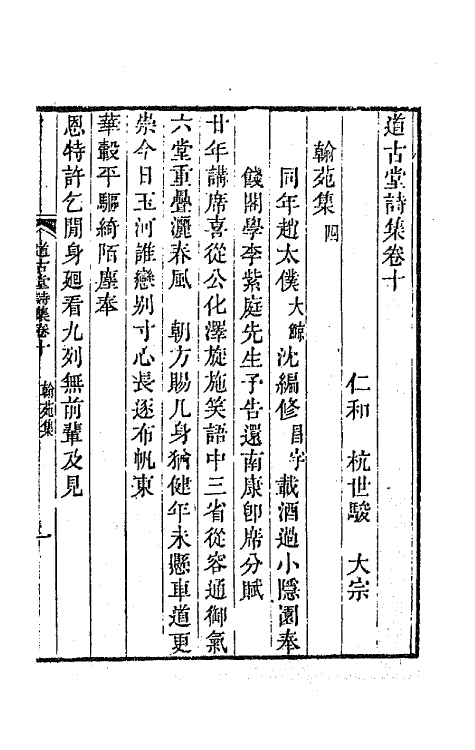 道古堂詩集卷十
仁和　杭世駿　大宗
翰苑集四
同年趙太僕大鯨沈編修昌宇載酒過小隱園奉
餞閣學李紫庭先生予告還南康卽席分賦
廿年講席喜從公化澤旋施笑語中三省從容通御氣
六堂重疊灑春風　朝方賜几身猶健年未懸車道更
崇今日玉河誰戀别寸心長逐布帆東
華轂平驅綺陌塵奉
恩特許乞閒身廻看九列無前輩及見
道古堂詩集卷十　翰苑集　一